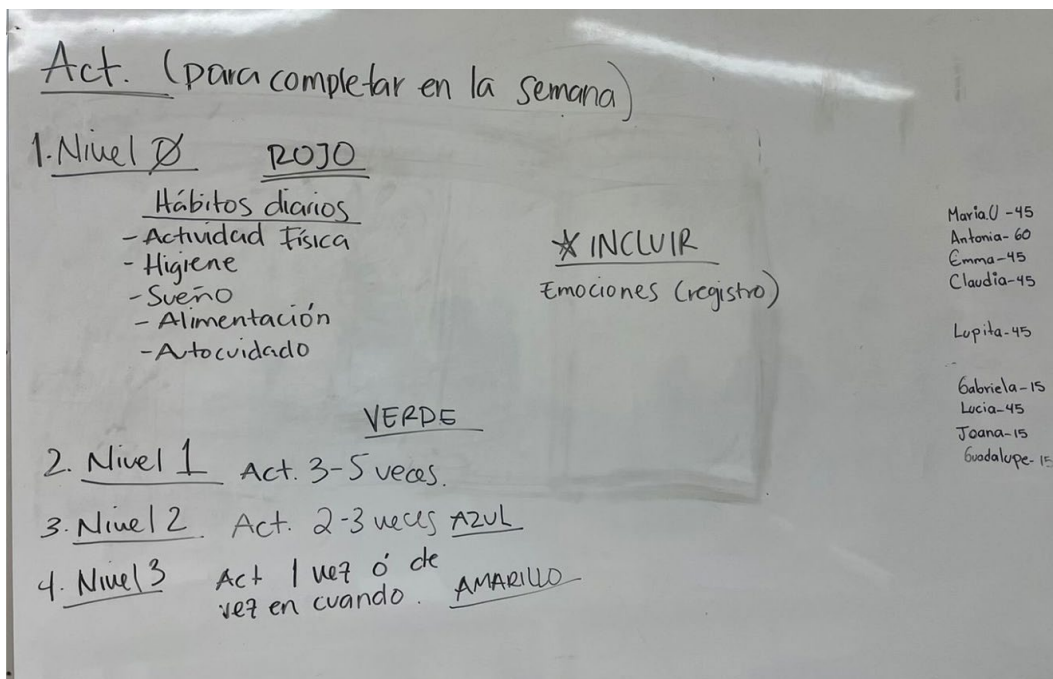 Act. (para completar en la semana)
1. Nivel 0 ROJO
Hábitos diarios
- Actividad Física
- Higiene
- Sueño
- Alimentación
- Autocuidado
VERDE
2. Nivel 1 Act. 3-5 veces.
3. Nivel 2 Act. 2-3 veces AZUL
4. Nivel 3 Act 1 vez ó de
vez en cuando. AMARILLO
* INCLUIR
Emociones (registro)
Maria.U -45
Antonia- 60
Emma-45
Claudia-45
Lupita-45
Gabriela-15
Lucia-45
Joana-15
Guadalupe-15